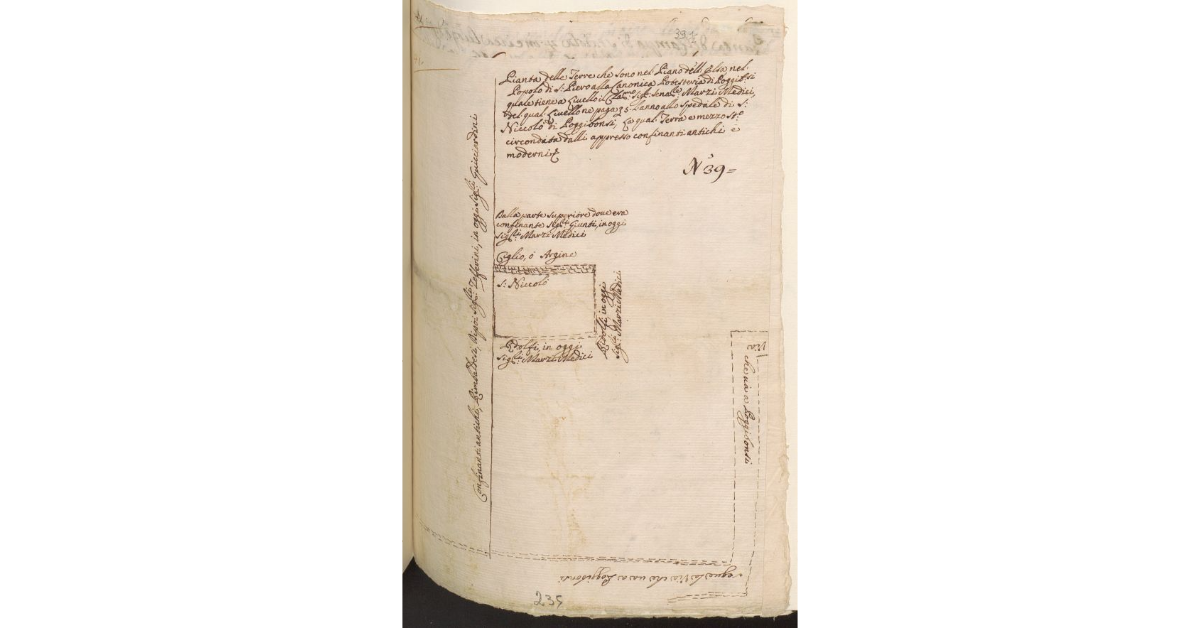 Pianta delle Terre che sono nel Piano dell'Elsa nel
Popolo di S: Piero alla Canonica Potesteria di Poggib:si
quale tiene a Livello il Senat:e Marzi Medici,
del qual Livello ne paga l'anno allo Spedale di S:
Niccolò di Poggibonsi, La qual Terra e mezzo St:o
circondata dalli appresso confinanti antichi e
moderni
N.o 39=
Dalla parte superiore dove era
confinante Sig:ri Giunti, in oggi
Sig:ri Marzi Medici
Ciglio, ò Argine
S: Niccolò
Ridolfi, in oggi
Sig:ri Marzi Medici
Ridolfi, in oggi
Sig:ri Marzi Medici
Confinanti antichi, in oggi Sig:ri Guicciardini
Via
che va a Poggibonsi
Segue la Via che va a Poggibonsi
235